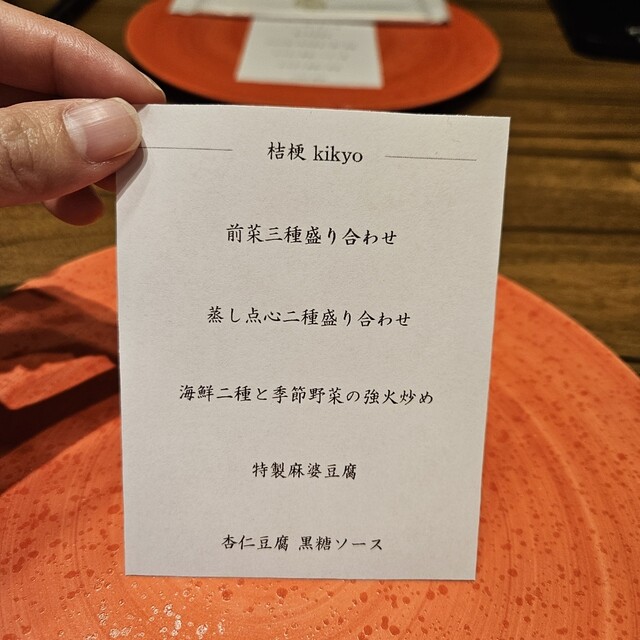 桔梗 kikyo
前菜三種盛り合わせ
蒸し点心二種盛り合わせ
海鮮二種と季節野菜の強火炒め
特製麻婆豆腐
杏仁豆腐 黒糖ソース